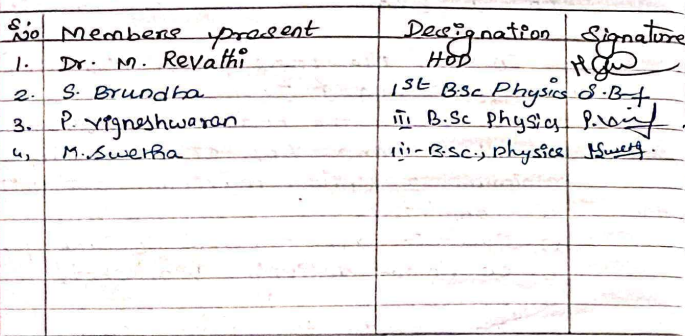 S.No Members present Designation Signature
1. Dr. M. Revathi HOD
2. S. Brundha 1st B.Sc Physics S.B
3. P. Vigneshwaran iii B.Sc physics
4, M. Swetha iii-B.Sc., physics Mswetha.